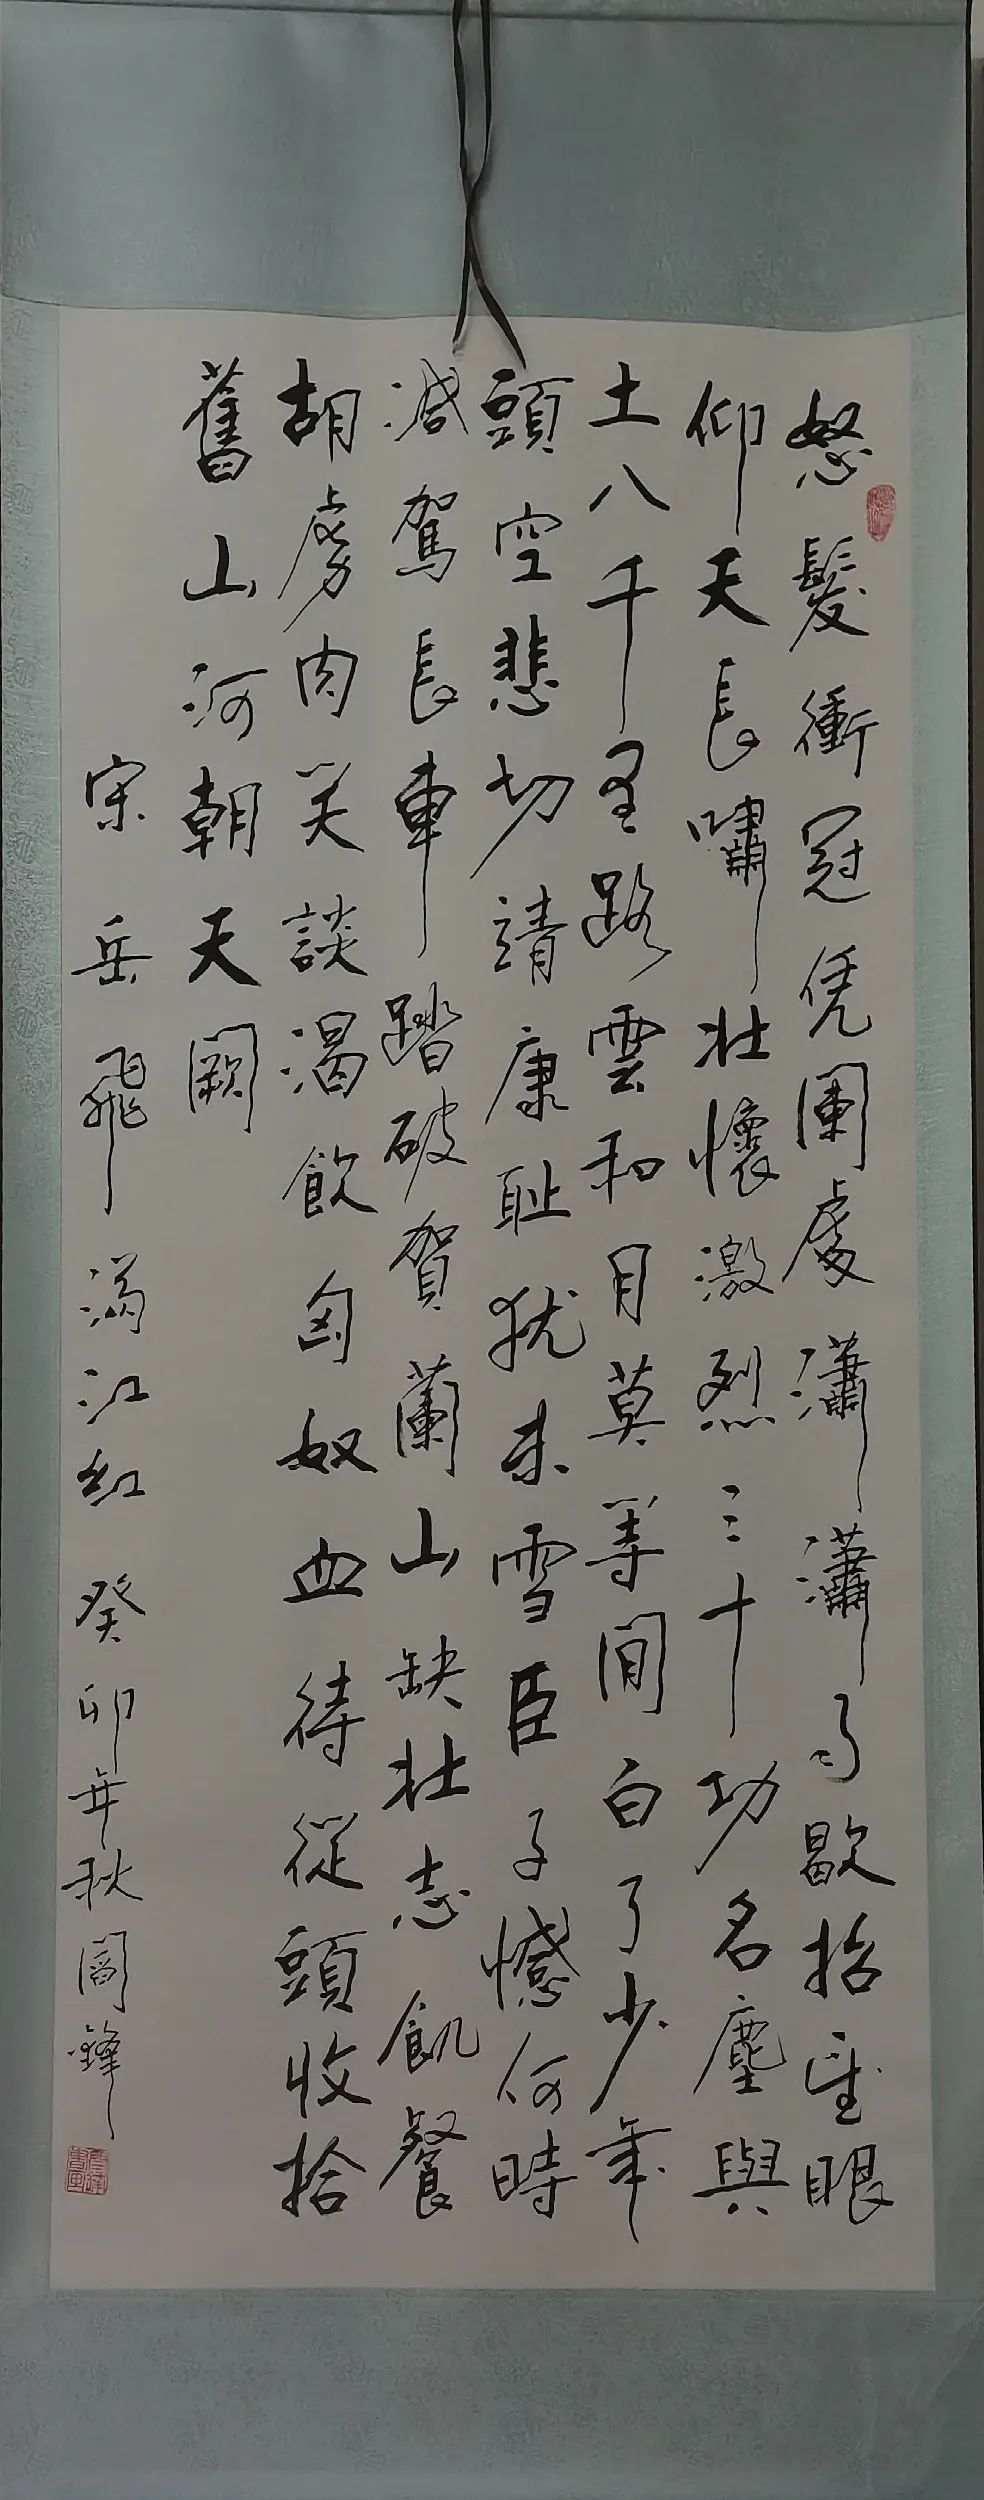 怒髮衝冠凭闌處瀟瀟雨歇抬望眼
仰天長嘯壯懷激烈三十功名塵與
土八千里路雲和月莫等閒白了少年
頭空悲切靖康恥猶未雪臣子憾何時
滅駕長車踏破賀蘭山缺壯志飢餐
胡虜肉笑談渴飲匈奴血待從頭收拾
舊山河朝天闕
宋岳飛滿江紅癸卯年秋閻鋒